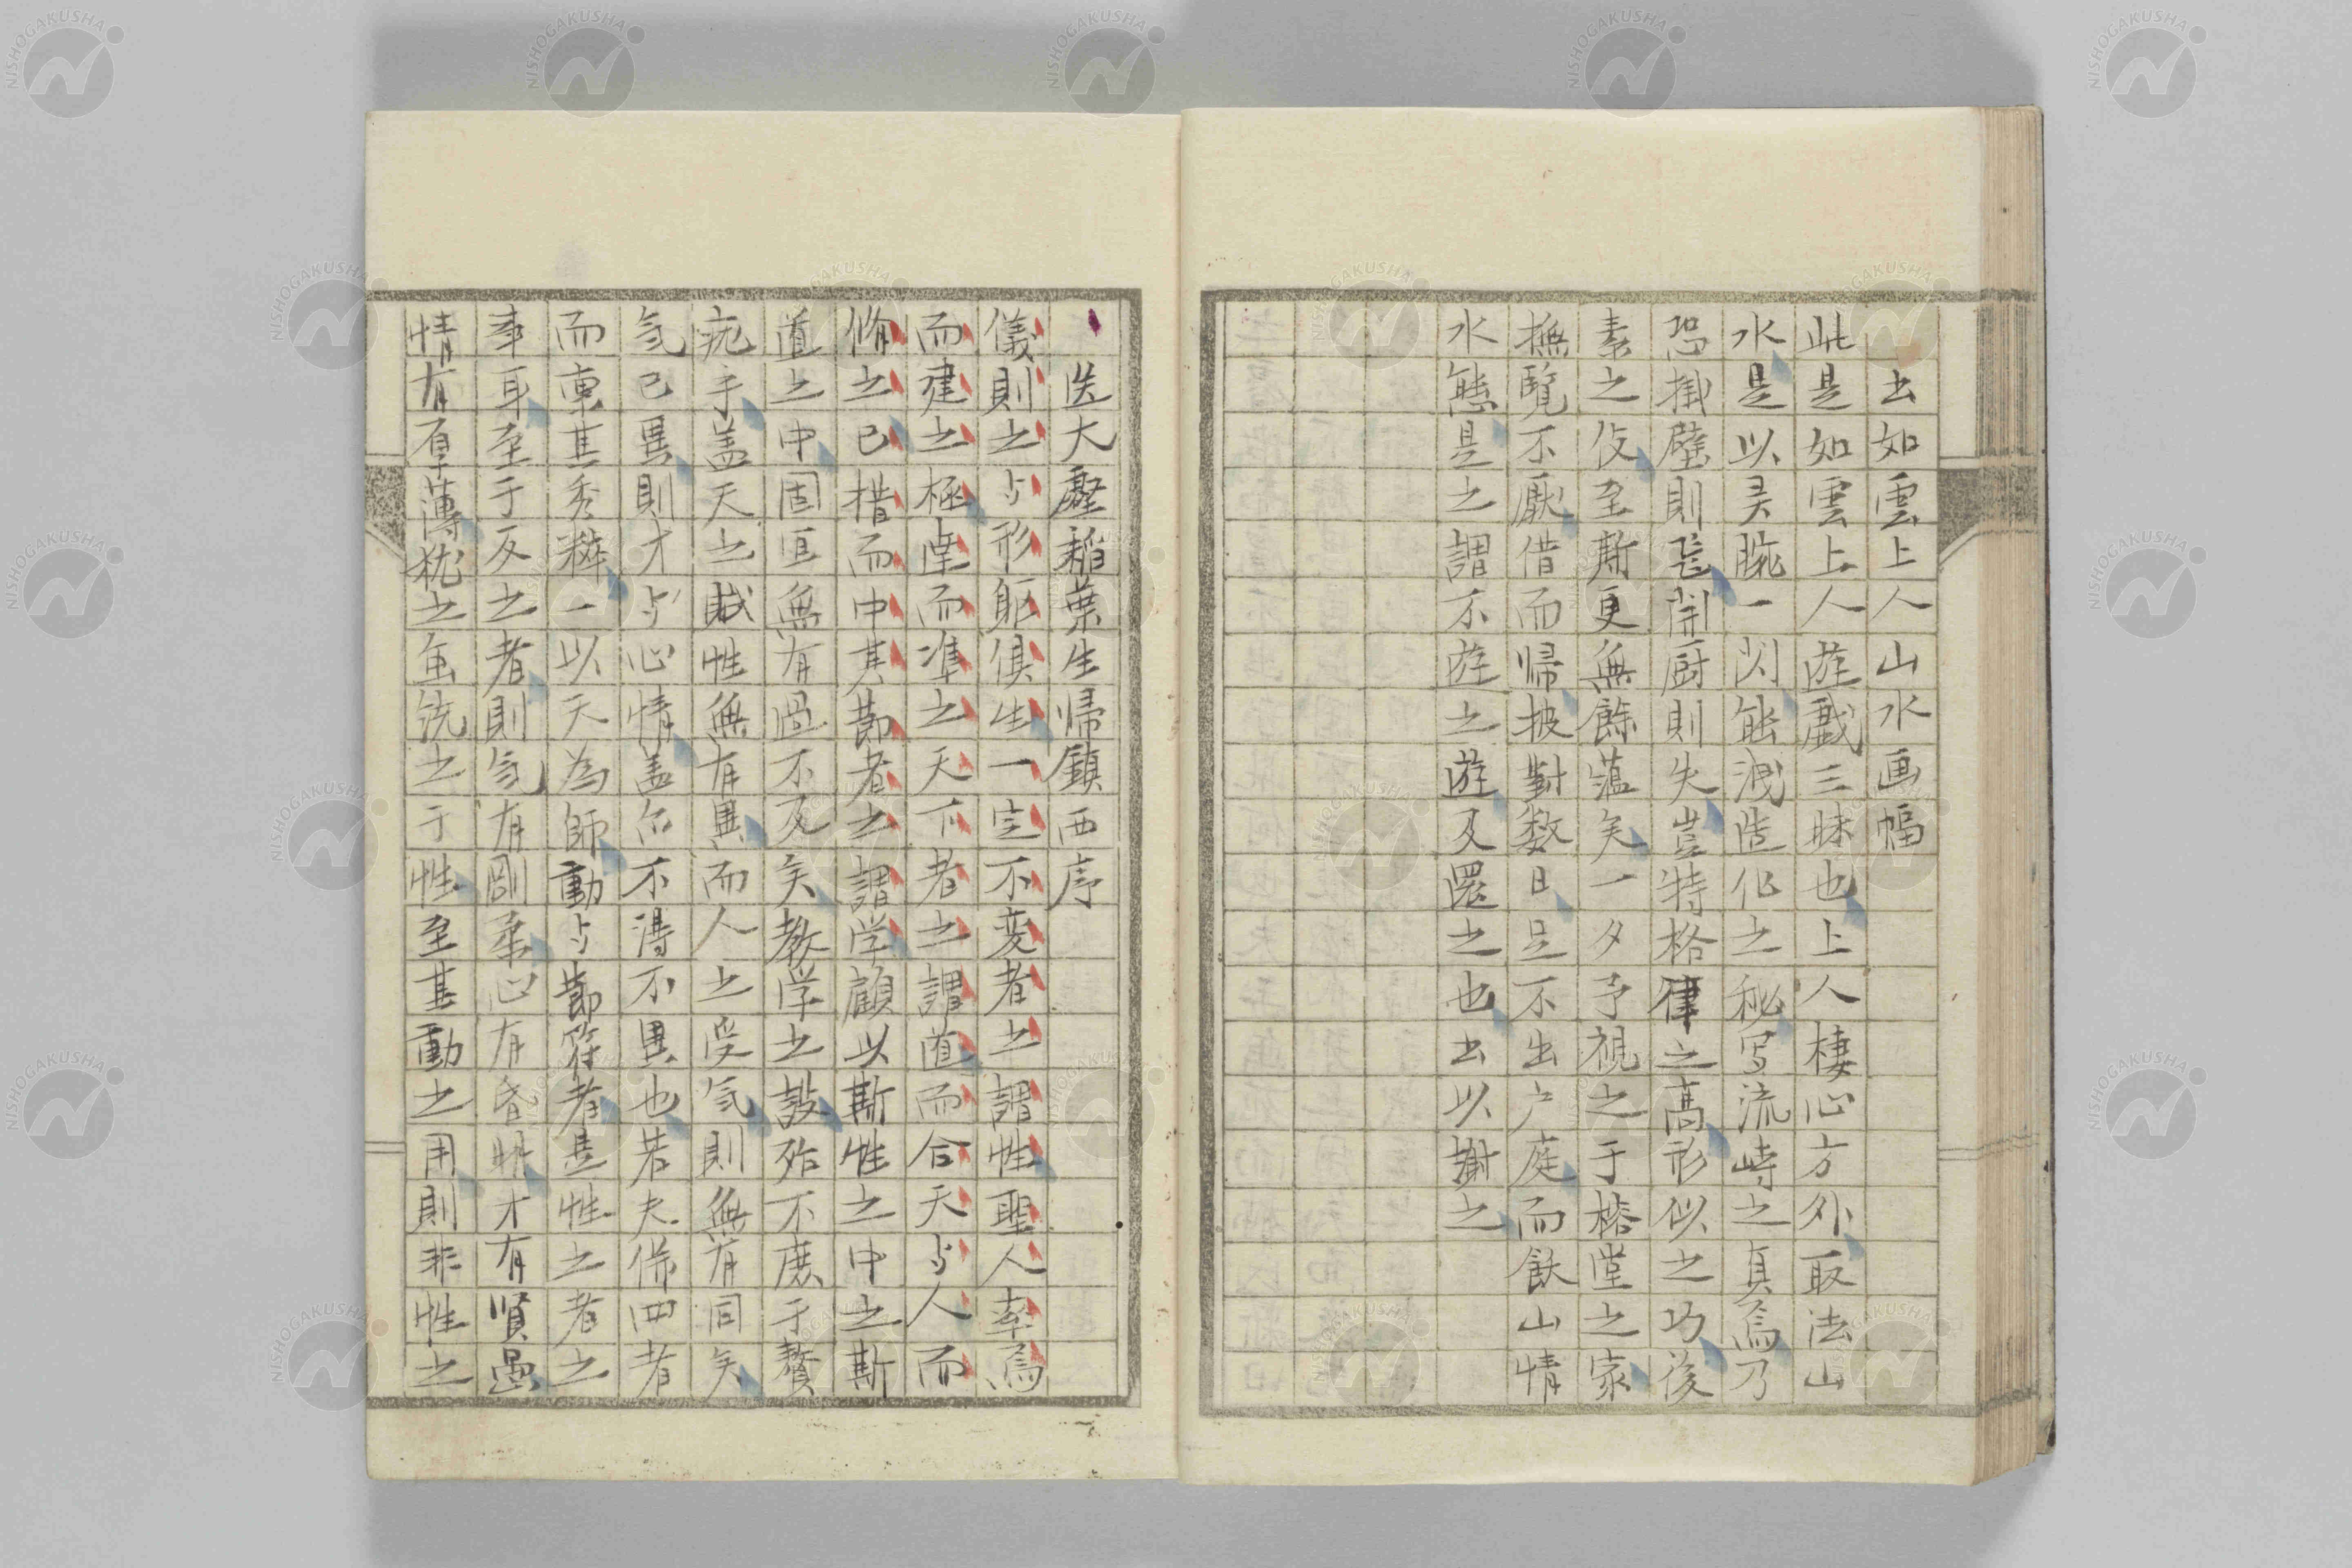 去如雲上人山水画幅
此是如雲上人遊戯三昧也上人棲心方外取法山
水是以灵腕一闪能洩造化之秘写流峙之真焉乃
恐掛壁則飛開厨則失豈特格律之高形似之巧後
素之伎至斯更無餘蘊矣一夕予視之于榕堂之家
撫覧不厭借而帰披對数日足不出户庭而飫山情
水態是之謂不遊之遊及還之也去以謝之
送大壑稲葉生帰鎮西序
儀則之与形躯俱生一定不変者之謂性聖人率焉
而建之極達而準之天下者之謂道而合天与人而
脩之已措而中其節者之謂学顧以斯性之中之斯
道之中固宜無有過不及矣教学之設殆不庶于贅
疣乎盖天之賦性無有異而人之受気則無有同矣
気已異則才与心情盖亦不得不異也若夫係四者
而稟其秀粹一以天為師動与節符者是性之者之
事耳至于反之者則気有剛柔心有昏明才有賢愚
情有厚薄犹之金銃之于性至其動之用則非性之